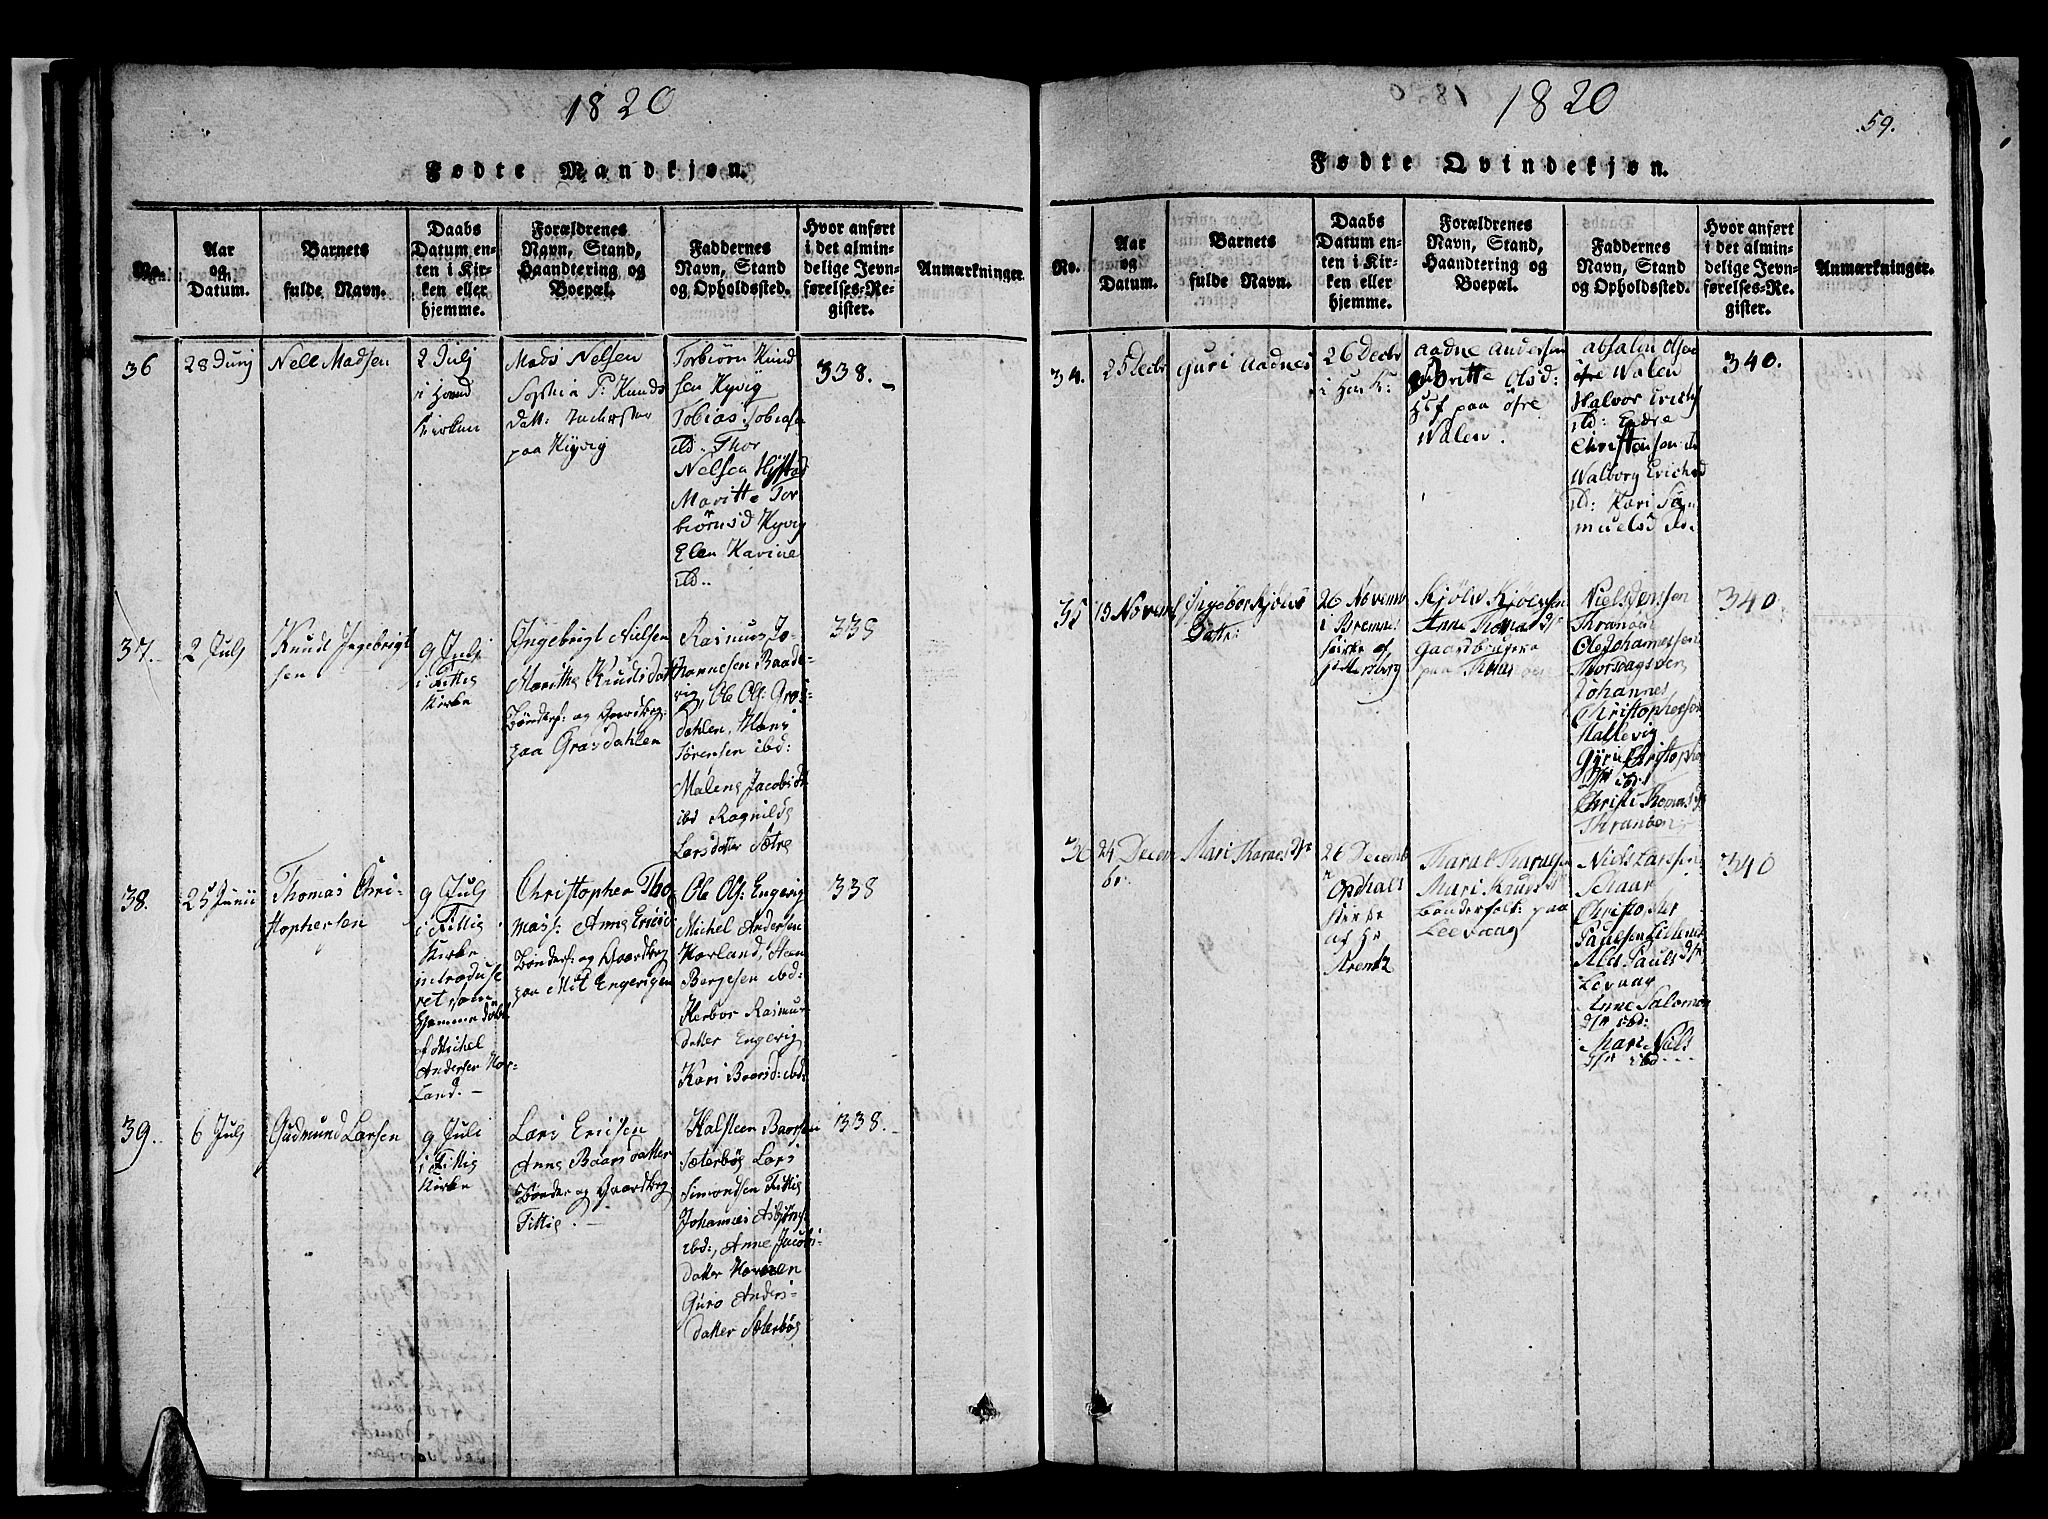 1820
Fødte Mandkjøn.
No.
Aar
og
Datum.
Barnets
fulde Navn.
Daabs
Datum en-
ten i Kir-
ken eller
hjemme.
Forældrenes
Navn, Stand,
Haandtering og
Boepæl.
Faddernes
Navn, Stand
og Opholdssted.
Hvor anført
i det almin-
delige Jevn-
førelses-Re-
gister.
Anmærkninger.
36
28 Junj
Nell Madsen
2 Julj
i
Kirken
Mads Nelsen
Sophia P: Knuds
Datt:
paa Kyvig
Torbiörn Knud
sen Kyvig
Tobias Tobiasen
ibd. Thor
Nelsen
Maritte Tor
biörnsd Kyvig
Elen Karine
ibd.
338.
37.
2 Julj
Knud Ingebrigt
sen
9 Julj
i Fittie
Kirke
Ingebrigt Nielsen
Maritha Knudsdatt
Bönderf: og Gaardbrg:
paa Grasdahlen
Rasmus Jo-
hannesen Baade-
vig, Ole Ols: Gras-
dahlen, Hans
Sörensen ibd:
Malena Jacobsdr
ibd Ragnilda
Larsdatter Sætre
338
38.
25 Junii
Thomas Chri-
stophersen
9 Julj
i Fittie
Kirke
introduse
ret som
Hjemmedöbt
af Michel
Andersen Hor-
land.
Christopher Tho
mass: Anna Erics:
Bönderf: og Gaardbrg
paa Mit Engevigen
Ole Ols: Engevig
Michel Andersen
Horland, Hans
Bergesen ibd:
Herbor Rasmus-
datter Engevig
Kari Baarsd: ibd:
338
39.
6 Julj
Gudmund Larsen
9 Juli
i Fittie
Kirke
Lars Ericsen
Anna Baarsdatter
Bönder og Gaardbrg
Fittie.
Halsteen Baarsen
Sæterböe Lars
Simondsen Fittie
Johannes Asbjörns:
ibd:, Anne Jacobs-
datter
Guro Anders-
datter Sæterböe
338.
1820
59.
Fødte Qvindekjøn.
No.
Aar
og
Datum.
Barnets
fulde Navn.
Daabs
Datum en-
ten i Kir-
ken eller
hjemme.
Forældrenes
Navn, Stand,
Haandtering og
Boepæl.
Faddernes
Navn, Stand
og Opholdssted.
Hvor anført
i det almin-
delige Jevn-
førelses-Re-
gister.
Anmærkninger.
34.
25 Decbr
Guri Aadnes
26 Decbr
i
Aadne Andersen
Britte Olsd:
paa öfre
Walen.
Absalon Olsen
öfre Walen
Halvor Erichs
ibd: Endre
Christensen ib
Walborg Erichsd
ibd: Kari Sa
muelsd ib.
340.
35
19 Novemb
Ingebor Kjölvs
Datter
26 Novemb
i Bremnes
Kirke af
Kjölv Kjölvsen
Anne Thomas Dtr
Gaardbrugere
paa
Niels Jensen
Thranöen
Ole Johannesen
Johannes
Christophersen
Hallevig
Gyri Christopher
Dtr ibd
Christi Thomas Dtr
Thranöen
340.
36
24 Decem
br.
Mari Tharnes Dtr
26 Decemb
Opdhals
Kirke
af Hr
Arentz
Tharal Tharalsen
Mari Knuds Dtr
Bönderfolk: paa
Leevaag
Niels Larssen
Christopher
Paulsen
Pauls Dtr
Levaag
Anne Salomon
Dtr ibd:
Mari Niels
Dtr ibd
340